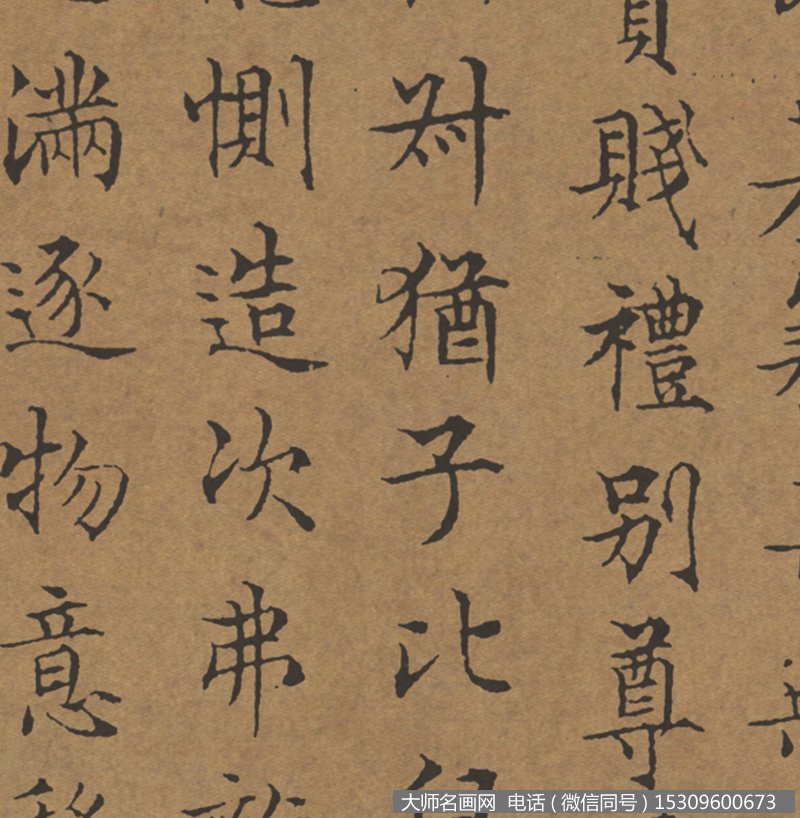 賤禮别尊
叔猶子比
惻造次弗
滿逐物意
大师名画网 电话（微信同号）15309600673